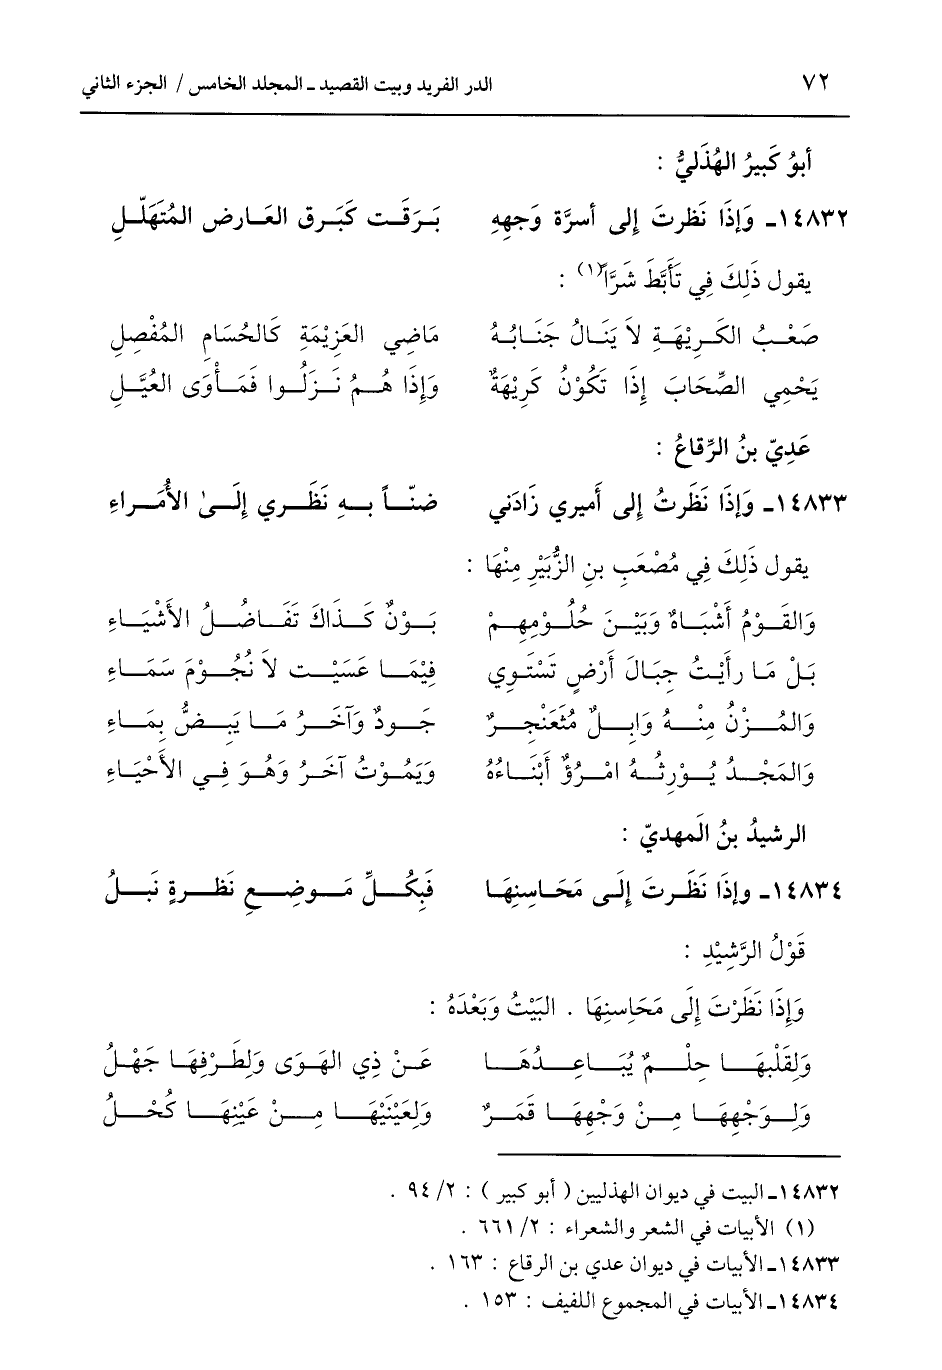 ٧٢ الدر الفريد وبيت القصيد ـ المجلد الخامس / الجزء الثاني
أبوُ كَبيرُ الهُذَليُّ :
١٤٨٣٢ـ وَإذَا نَظرتَ إلى أسرَّة وَجههِ بَـرَقَـت كَبَـرق العَـارض المُتَهَلّـلِ
يقول ذَلِكَ فِي تَأَبَّطَ شَرَّاً(١) :
صَعْـبُ الكَـرِيْهَـةِ لاَ يَنَـالُ جَنَـابُـهُ مَاضِي العَزِيْمَةِ كَالحُسَامِ المُفْصِلِ
يَحْمِي الصِّحَابَ إِذَا تَكُوْنُ كَرِيْهَةٌ وَإِذَا هُـمُ نَـزَلُـوا فَمَـأْوَى العُيَّـلِ
عَدِيّ بنُ الرِّقاعُ :
١٤٨٣٣ـ وَإذَا نَظَرتُ إلى أَميري زَادَني ضنّـاً بـهِ نَظَـري إلَـىٰ الأُمَـراءِ
يقول ذَلِكَ فِي مُصْعَبِ بنِ الزُّبَيْرِ مِنْهَا :
وَالقَـوْمُ أَشْبَـاهٌ وَبَيْـنَ حُلُـوْمِهِـمْ بَـوْنٌ كَـذَاكَ تَفَـاضُـلُ الأَشْيَـاءِ
بَلْ مَا رأَيْتُ جِبَالَ أَرْضٍ تَسْتَوِي فِيْمَـا عَسَيْـت لاَ نُجُـوْمَ سَمَـاءِ
وَالمُـزْنُ مِنْـهُ وَابِـلٌ مُثْعَنْجِـرٌ جَـودٌ وَآخَـرُ مَـا يَبِـضُّ بِمَـاءِ
وَالمَجْـدُ يُـوْرِثُـهُ امْـرُؤٌ أَبْنَـاءُهُ وَيَمُـوْتُ آخَـرُ وَهُـوَ فِـي الأَحْيَـاءِ
الرشيدُ بنُ المَهديّ :
١٤٨٣٤ـ وإذَا نَظَـرتَ إلَـى مَحَـاسِنِهَـا فَبكُـلِّ مَـوضِـعِ نَظْـرةٍ نَبـلُ
قَوْلُ الرَّشِيْدِ :
وَإِذَا نَظَرْتَ إِلَى مَحَاسِنِهَا . البَيْتُ وَبَعْدَهُ :
وَلِقَلْبِهَـا حِلْـمٌ يُبَـاعِـدُهَـا عَـنْ ذِي الهَـوَى وَلِطَـرْفِهَـا جَهْـلُ
وَلِـوَجْهِهَـا مِـنْ وَجْهِهَـا قَمَـرٌ وَلِعَيْنِيْهَـا مِـنْ عَيْنِهَـا كُحْـلُ
١٤٨٣٢ـ البيت في ديوان الهذليين ( أبو كبير ) : ٢/ ٩٤ .
(١) الأبيات في الشعر والشعراء : ٢/ ٦٦١ .
١٤٨٣٣ـ الأبيات في ديوان عدي بن الرقاع : ١٦٣ .
١٤٨٣٤ـ الأبيات في المجموع اللفيف : ١٥٣ .